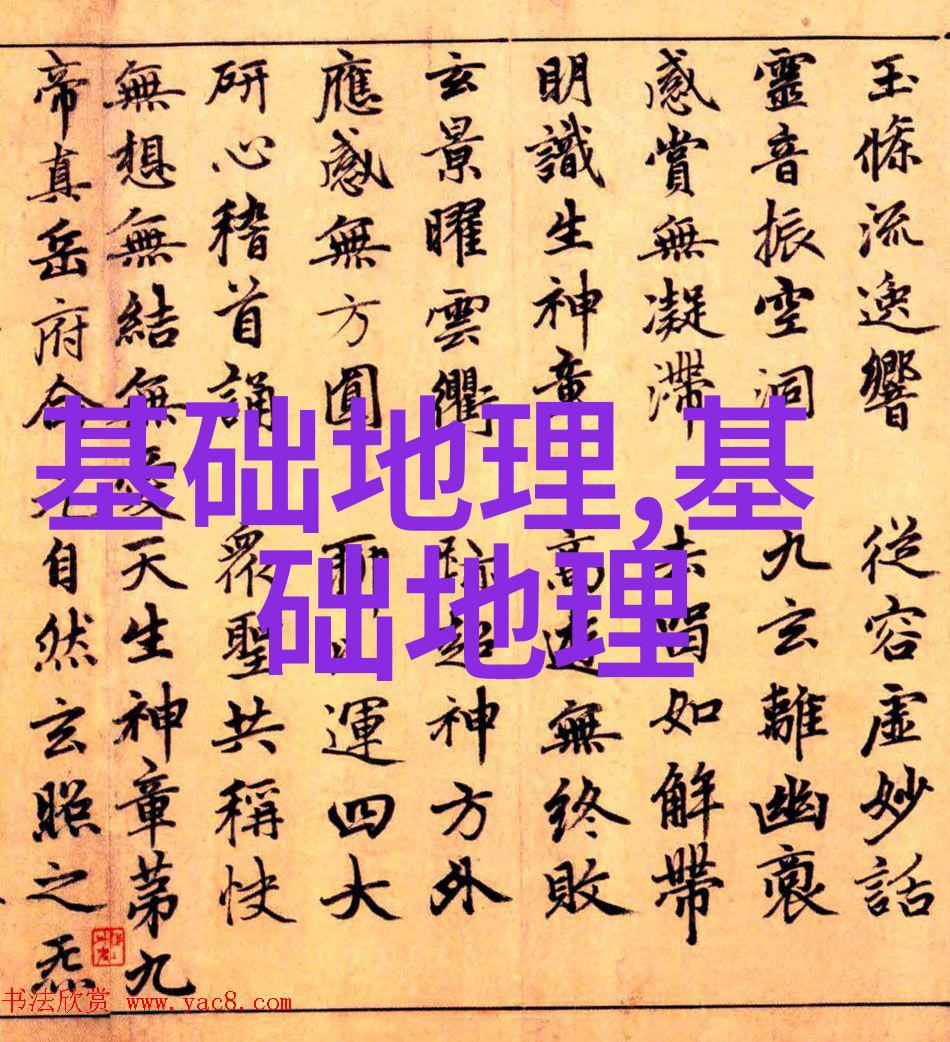 玉條流逸響 從容虛妙話
靈音振空洞 九玄離幽裒
感賞無凝滯 去留如解帶
明識生神章 高遊無終敗
玄景曜雲衢 跡超神方外
應感無方圓 聊以運四大
研心稽首誦 眾聖共稱快
無想無結無愛天生神章第九
帝真岳府命元自然玄照之炁
基础地理,基
础地理
书法欣赏 www.yac8.com